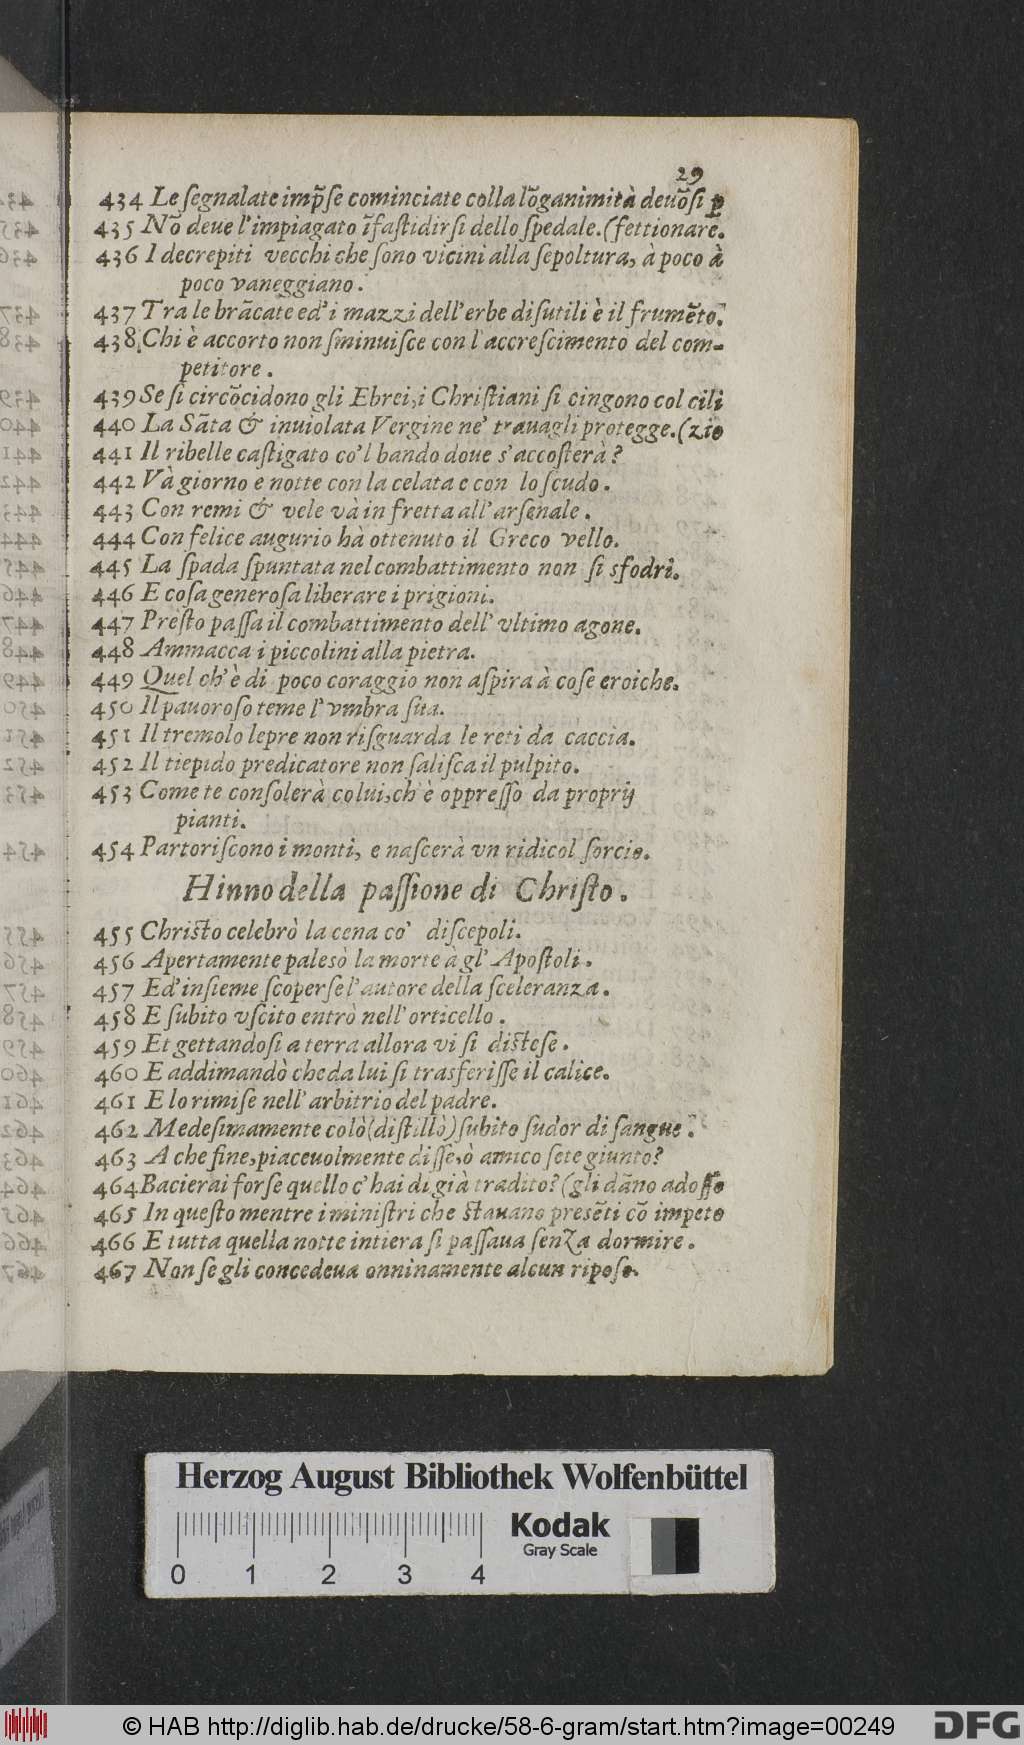 29
434 Le ſegnalate imp̃ſe cominciate colla lõganimità deuõſi ꝑ
435 Nõ deue l'impiagato ĩfaſtidirſi dello ſpedale. (fettionare.
436 I decrepiti vecchi che ſono vicini alla ſepoltura, à poco à
poco vaneggiano.
437 Tra le brãcate ed'i mazzi dell'erbe diſutili è il frumẽto.
438 Chi è accorto non ſminuiſce con l'accreſcimento del com-
petitore.
439 Se ſi circõcidono gli Ebrei, i Chriſtiani ſi cingono col cili
440 La Sãta & inuiolata Vergine ne' trauagli protegge. (zio
441 Il ribelle caſtigato co'l bando doue s'accoſterà?
442 Và giorno e notte con la celata e con lo ſcudo.
443 Con remi & vele và in fretta all'arſenale.
444 Con felice augurio hà ottenuto il Greco vello.
445 La ſpada ſpuntata nel combattimento non ſi sfodri.
446 E coſa generoſa liberare i prigioni.
447 Preſto paſſa il combattimento dell'vltimo agone.
448 Ammacca i piccolini alla pietra.
449 Quel ch'è di poco coraggio non aſpira à coſe eroiche.
450 Il pauoroſo teme l'vmbra ſua.
451 Il tremolo lepre non riſguarda le reti da caccia.
452 Il tiepido predicatore non ſaliſca il pulpito.
453 Come te conſolerà colui, ch'è oppreſſo da proprij
pianti.
454 Partoriſcono i monti, e naſcerà vn ridicol ſorcio.
Hinno della paſſione di Chriſto.
455 Chriſto celebrò la cena co' diſcepoli.
456 Apertamente palesò la morte à gl'Apoſtoli.
457 Ed'inſieme ſcoperſe l'autore della ſceleranza.
458 E ſubito vſcito entrò nell'orticello.
459 Et gettandoſi a terra allora vi ſi diſteſe.
460 E addimandò che da lui ſi trasferiſſe il calice.
461 E lo rimiſe nell'arbitrio del padre.
462 Medeſimamente colò (diſtillò) ſubito ſudor di ſangue.
463 A che fine, piaceuolmente diſſe, ò amico ſete giunto?
464 Bacierai forſe quello c'hai di già tradito? (gli dãno adoſſo
465 In queſto mentre i miniſtri che ſtauano preſẽti cõ impeto
466 E tutta quella notte intiera ſi paſſaua ſenza dormire.
467 Non ſe gli concedeua onninamente alcun ripoſo.
Herzog August Bibliothek Wolfenbüttel
Kodak
Gray Scale
0 1 2 3 4
© HAB http://diglib.hab.de/drucke/58-6-gram/start.htm?image=00249
DFG